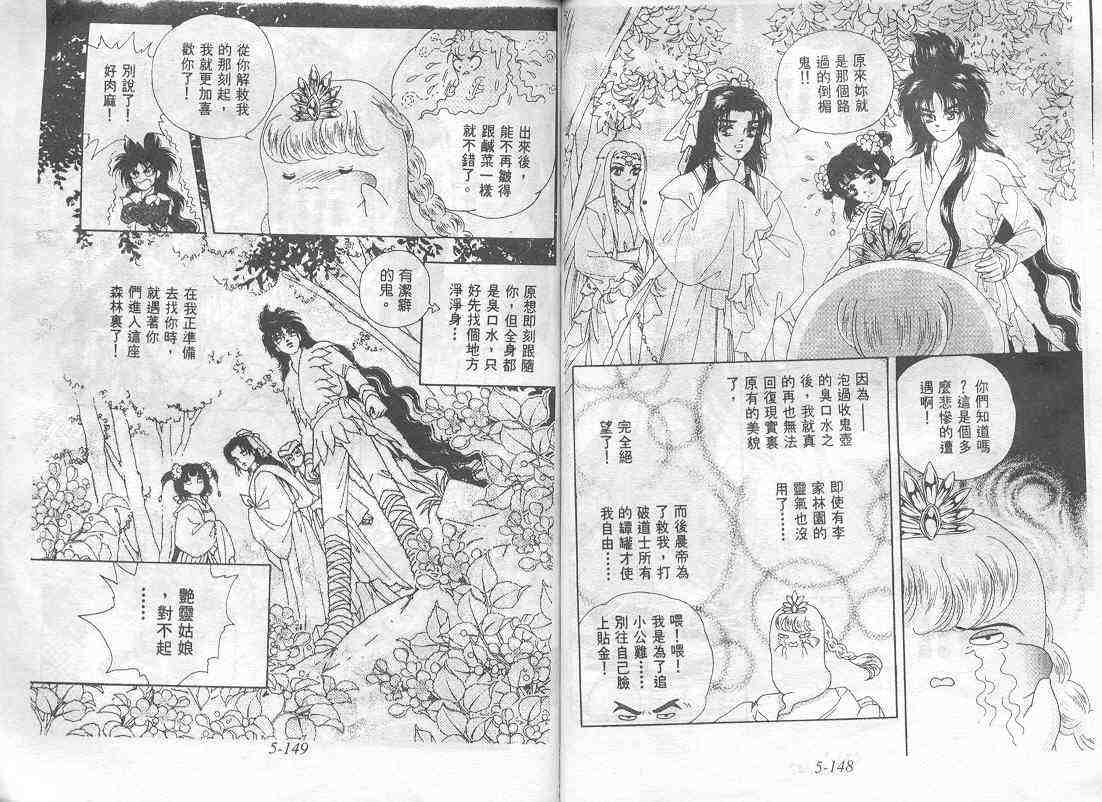 原來妳就
是那個路
過的倒楣
鬼!!
你們知道嗎
?這是個多
麼悲慘的遭
遇啊!
因為——
泡過收鬼壺
的臭口水之
後,我就真
的再也無法
回復現實裏
原有的美貌
了。
即使有李
家林園的
靈氣也沒
用了……
完全絕
望了!
而後晨帝為
了救我,打
破道士所有
的罈罐才使
我自由……
喂!喂!
我是為了追
小公雞……
別往自己臉
上貼金!
5-148
出來後,
能不再皺得
跟鹹菜一樣
就不錯了。
從你解救我
的那刻起,
我就更加喜
歡你了!
別說了!
好肉麻!
原想即刻跟隨
你,但全身都
是臭口水,只
好先找個地方
淨淨身…
有潔癖
的鬼。
在我正準備
去找你時,
就遇著你
們進入這座
森林裏了!
艷靈姑娘
,對不起
……
5-149